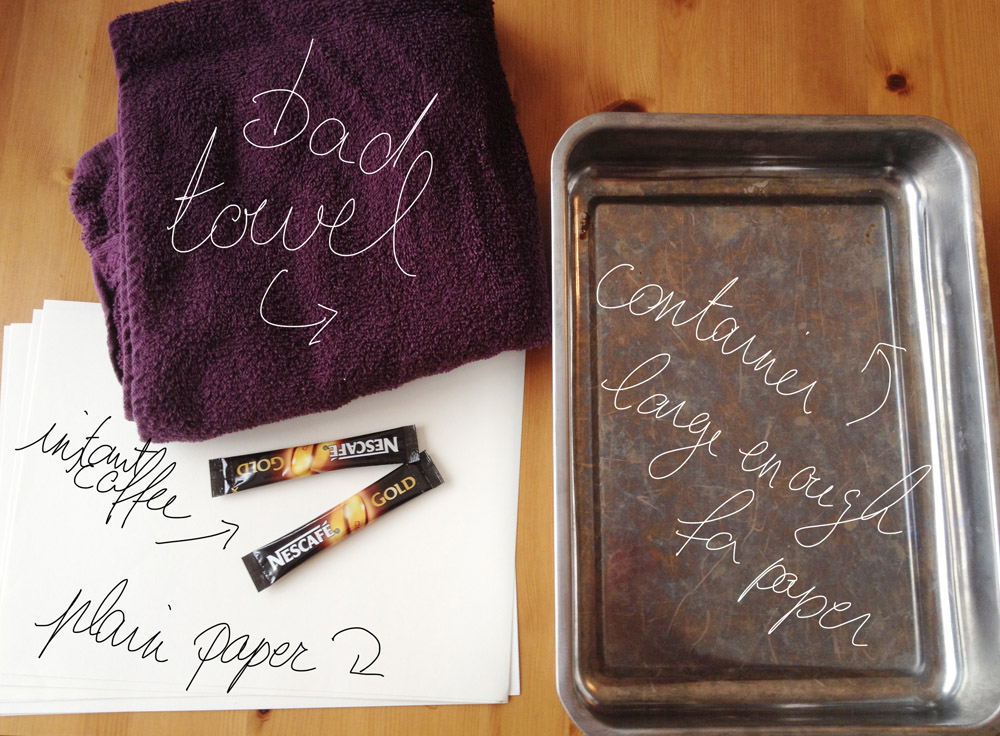 bad
towel
container
large enough
for paper
instant
coffee
NESCAFÉ GOLD
NESCAFÉ GOLD
plain paper